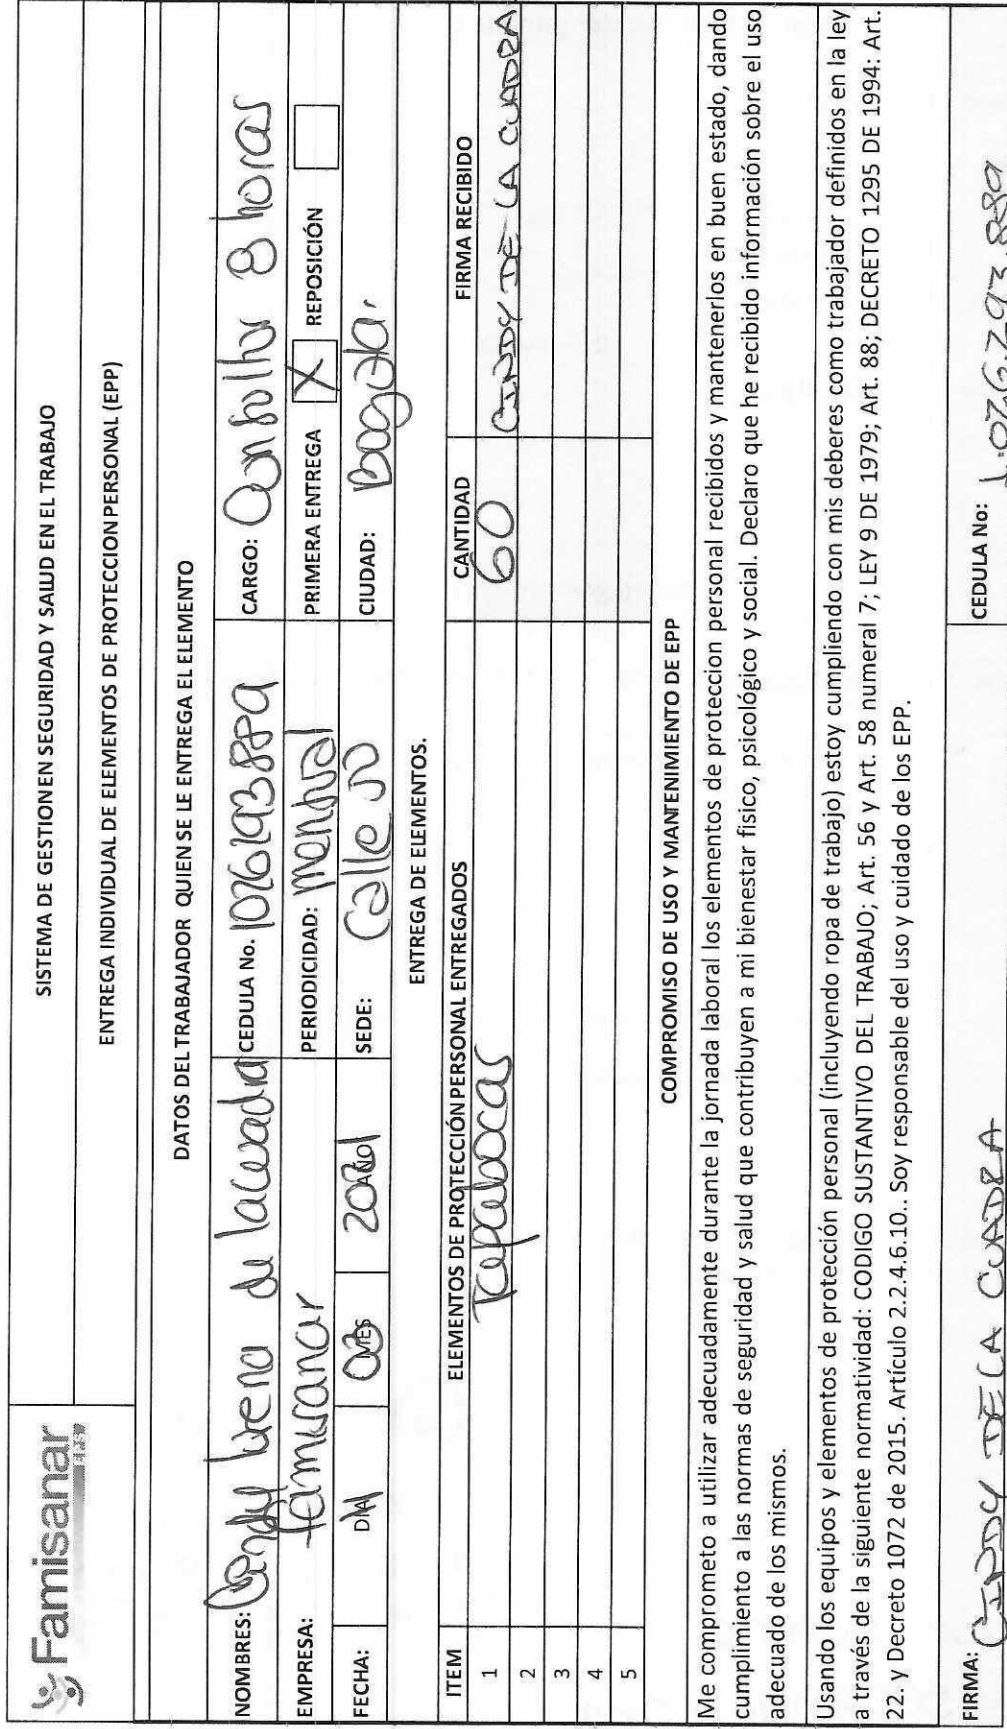 Famisanar
EPS
SISTEMA DE GESTION EN SEGURIDAD Y SALUD EN EL TRABAJO
ENTREGA INDIVIDUAL DE ELEMENTOS DE PROTECCION PERSONAL (EPP)
DATOS DEL TRABAJADOR QUIEN SE LE ENTREGA EL ELEMENTO
NOMBRES: de lacuadra CEDULA No. CARGO: 8 horas
EMPRESA: famisanar PERIODICIDAD: PRIMERA ENTREGA X REPOSICIÓN
FECHA: DIA MES 03 AÑO 2021 SEDE: Calle CIUDAD: Bogota.
ENTREGA DE ELEMENTOS.
ITEM ELEMENTOS DE PROTECCIÓN PERSONAL ENTREGADOS CANTIDAD FIRMA RECIBIDO
1 Tapabocas 60 CINDY DE LA CUADRA
2
3
4
5
COMPROMISO DE USO Y MANTENIMIENTO DE EPP
Me comprometo a utilizar adecuadamente durante la jornada laboral los elementos de proteccion personal recibidos y mantenerlos en buen estado, dando
cumplimiento a las normas de seguridad y salud que contribuyen a mi bienestar fisico, psicológico y social. Declaro que he recibido información sobre el uso
adecuado de los mismos.
Usando los equipos y elementos de protección personal (incluyendo ropa de trabajo) estoy cumpliendo con mis deberes como trabajador definidos en la ley
a través de la siguiente normatividad: CODIGO SUSTANTIVO DEL TRABAJO; Art. 56 y Art. 58 numeral 7; LEY 9 DE 1979; Art. 88; DECRETO 1295 DE 1994: Art.
22. y Decreto 1072 de 2015. Artículo 2.2.4.6.10.. Soy responsable del uso y cuidado de los EPP.
FIRMA: CINDY DE LA CUADRA CEDULA No: 1.026.293.889